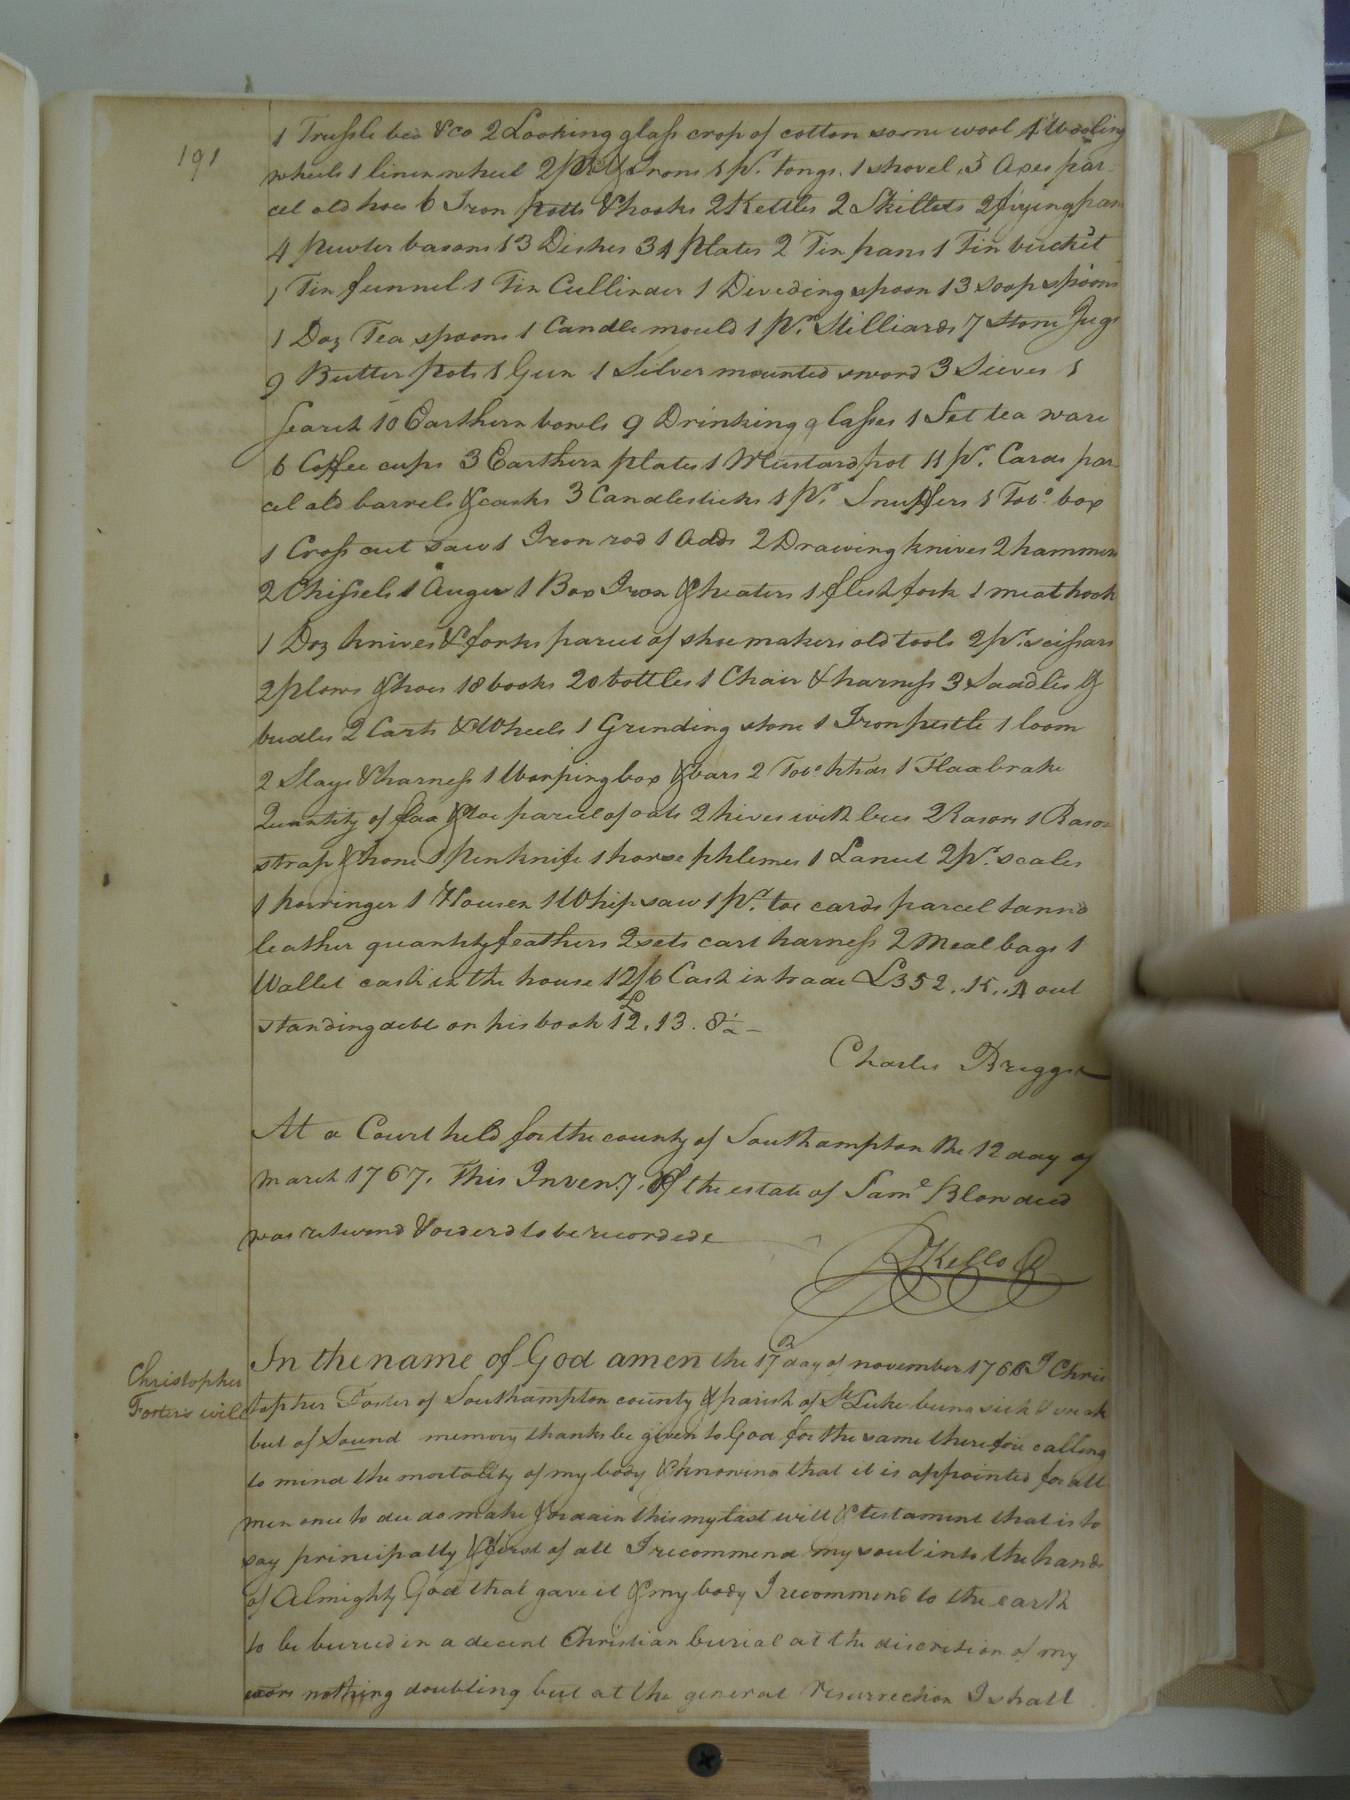 191
1 Trussle bed &co 2 Looking glass crop of cotton some wool 1 Wooling
wheels 1 linen wheel 2 pr Irons 1 pr. tongs. 1 shovel. 3 Axes par
cel old hoes 6 Iron potts & hooks 2 Kettles 2 Skillets 2 frying pans
4 Pewter basons 13 Dishes 34 plates 2 Tin pans 1 Tin bucket
1 Tin funnel 1 Tin Cullinder 1 Divideing spoon 13 soop spoons
1 Doz Tea spoons 1 Candle mould 1 pr. Stilliards 7 Stone Jugs
9 Butter pots 1 Gun 1 Silver mounted sword 3 Sieves 1
Search 10 Earthern bowls 9 Drinking glasses 1 Set tea ware
6 Coffee cups 3 Earthern plates 1 Mustard pot 11 pr. Cards par
cel old barrels & casks 3 Candlesticks 1 pr. Snuffers 1 Tobo. box
1 Cross cut saw 1 Iron rod 1 Adds 2 Drawing knives 2 hammers
2 Chissels 1 Auger 1 Box Iron & heaters 1 flesh fork 1 meat hook
1 Doz knives & forks parcel of shoe makers old tools 2 pr. scissars
2 plows & hoes 18 books 20 bottles 1 Chair & harness 3 Saddles &
bridles 2 Carts & Wheels 1 Grinding stone 1 Iron pestle 1 loom
2 Slays & harness 1 Warping box & bars 2 Tobo hhds 1 Flax brake
Quantity of flax & toe parcel of oats 2 hives with bees 2 Rasors 1 Rasor
strap & hone 1 penknife 1 horse phlemes 1 Lancet 2 pr. scales
1 porringer 1 Howen 1 Whip saw 1 pr. toe cards parcel tannd
leather quantity feathers 2 sets cart harness 2 Meal bags 1
Wallet cash in the house 12/6 Cash in trade £352.15.4 out
standing debts on his book £12.13.8½
Charles Briggs
At a Court held for the county of Southampton the 12 day of
March 1767. This Inven.y. of the estate of Saml Blow decd
was returnd & orderd to be recorded
R Kello C
Christopher
Foster's will
In the name of God amen the 17th day of november 1766 I Chris
topher Foster of Southampton county & parish of St Luke being sick & weak
but of Sound memory thanks be given to God for the same therefore calling
to mind the mortality of my body & knowing that it is appointed for all
men once to die do make & ordain this my last will & testament that is to
say principally & first of all I recommend my soul into the hands
of Almighty God that gave it & my body I recommend to the earth
to be buried in a decent Christian burial at the discretion of my
nothing doubting but at the general resurrection I shall